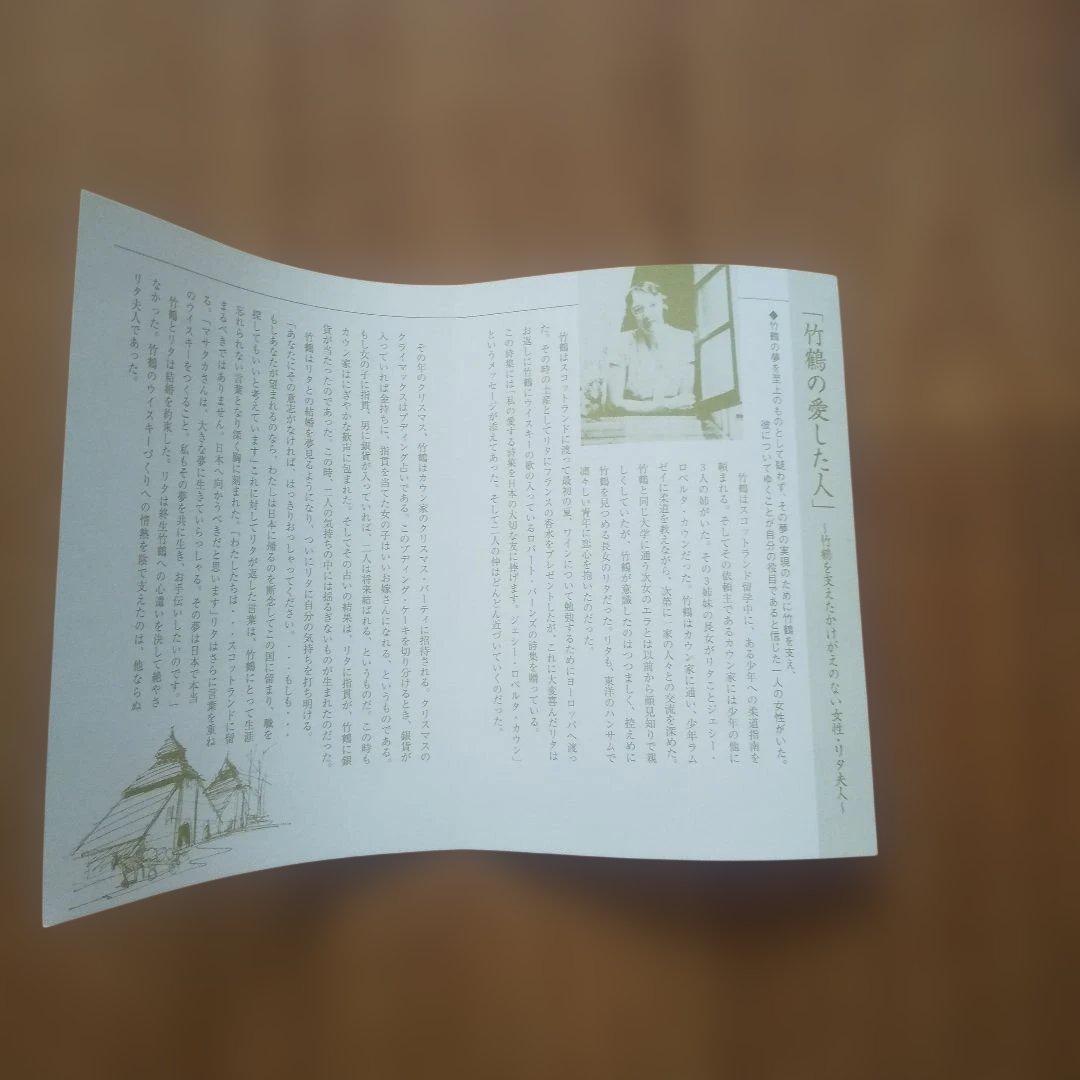 「竹鶴の愛した人」 ～竹鶴を支えたかけがえのない女性・リタ夫人～
◆竹鶴の夢を至上のものとして疑わず、その夢の実現のために竹鶴を支え、
彼についてゆくことが自分の役目であると信じた一人の女性がいた。
竹鶴はスコットランド留学中に、ある少年への柔道指南を
頼まれる。そしてその依頼主であるカウン家には少年の他に
3人の姉がいた。その3姉妹の長女がリタことジェシー・
ロベルタ・カウンだった。竹鶴はカウン家に通い、少年ラム
ゼイに柔道を教えながら、次第に一家の人々との交流を深めた。
竹鶴と同じ大学に通う次女のエラとは以前から顔見知りで親
しくしていたが、竹鶴が意識したのはつつましく、控えめに
竹鶴を見つめる長女のリタだった。リタも、東洋のハンサムで
凛々しい青年に恋心を抱いたのだった。
竹鶴はスコットランドに渡って最初の夏、ワインについて勉強するためにヨーロッパへ渡っ
た。その時の土産としてリタにフランスの香水をプレゼントしたが、これに大変喜んだリタは
お返しに竹鶴にウイスキーの歌の入っているロバート・バーンズの詩集を贈っている。
この詩集には「私の愛する詩集を日本の大切な友に捧げます。ジェシー・ロベルタ・カウン」
というメッセージが添えてあった。そして二人の仲はどんどん近づいていくのだった。
その年のクリスマス、竹鶴はカウン家のクリスマス・パーティに招待される。クリスマスの
クライマックスはプディング占いである。このプディング・ケーキを切り分けるとき、銀貨が
入っていれば金持ちに、指貫を当てた女の子はいいお嫁さんになれる、というものである。
もし女の子に指貫、男に銀貨が入っていれば、二人は将来結ばれる、というものだ。この時も
カウン家はにぎやかな歓声に包まれた。そしてその占いの結果は、リタに指貫が、竹鶴に銀
貨が当たったのであった。この時、二人の気持ちの中には揺るぎないものが生まれたのだった。
竹鶴はリタとの結婚を夢見るようになり、ついにリタに自分の気持ちを打ち明ける。
「あなたにその意志がなければ、はっきりおっしゃってください。・・・もしも・・
もしあなたが望まれるのなら、わたしは日本に帰るのを断念してこの国に留まり、職を
探してもいいと考えています」これに対してリタが返した言葉は、竹鶴にとって生涯
忘れられない言葉となり深く胸に刻まれた。「わたしたちは・・・スコットランドに留
まるべきではありません。日本へ向かうべきだと思います」リタはさらに言葉を重ね
る。「マサタカさんは、大きな夢に生きていらっしゃる。その夢は日本で本当
のウイスキーをつくること。私もその夢を共に生き、お手伝いしたいのです。」
竹鶴とリタは結婚を約束した。リタは終生竹鶴への心遣いを決して絶やさ
なかった。竹鶴のウイスキーづくりへの情熱を陰で支えたのは、他ならぬ
リタ夫人であった。